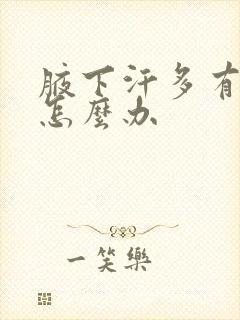 腋下汗多有
怎麼办
一笑樂